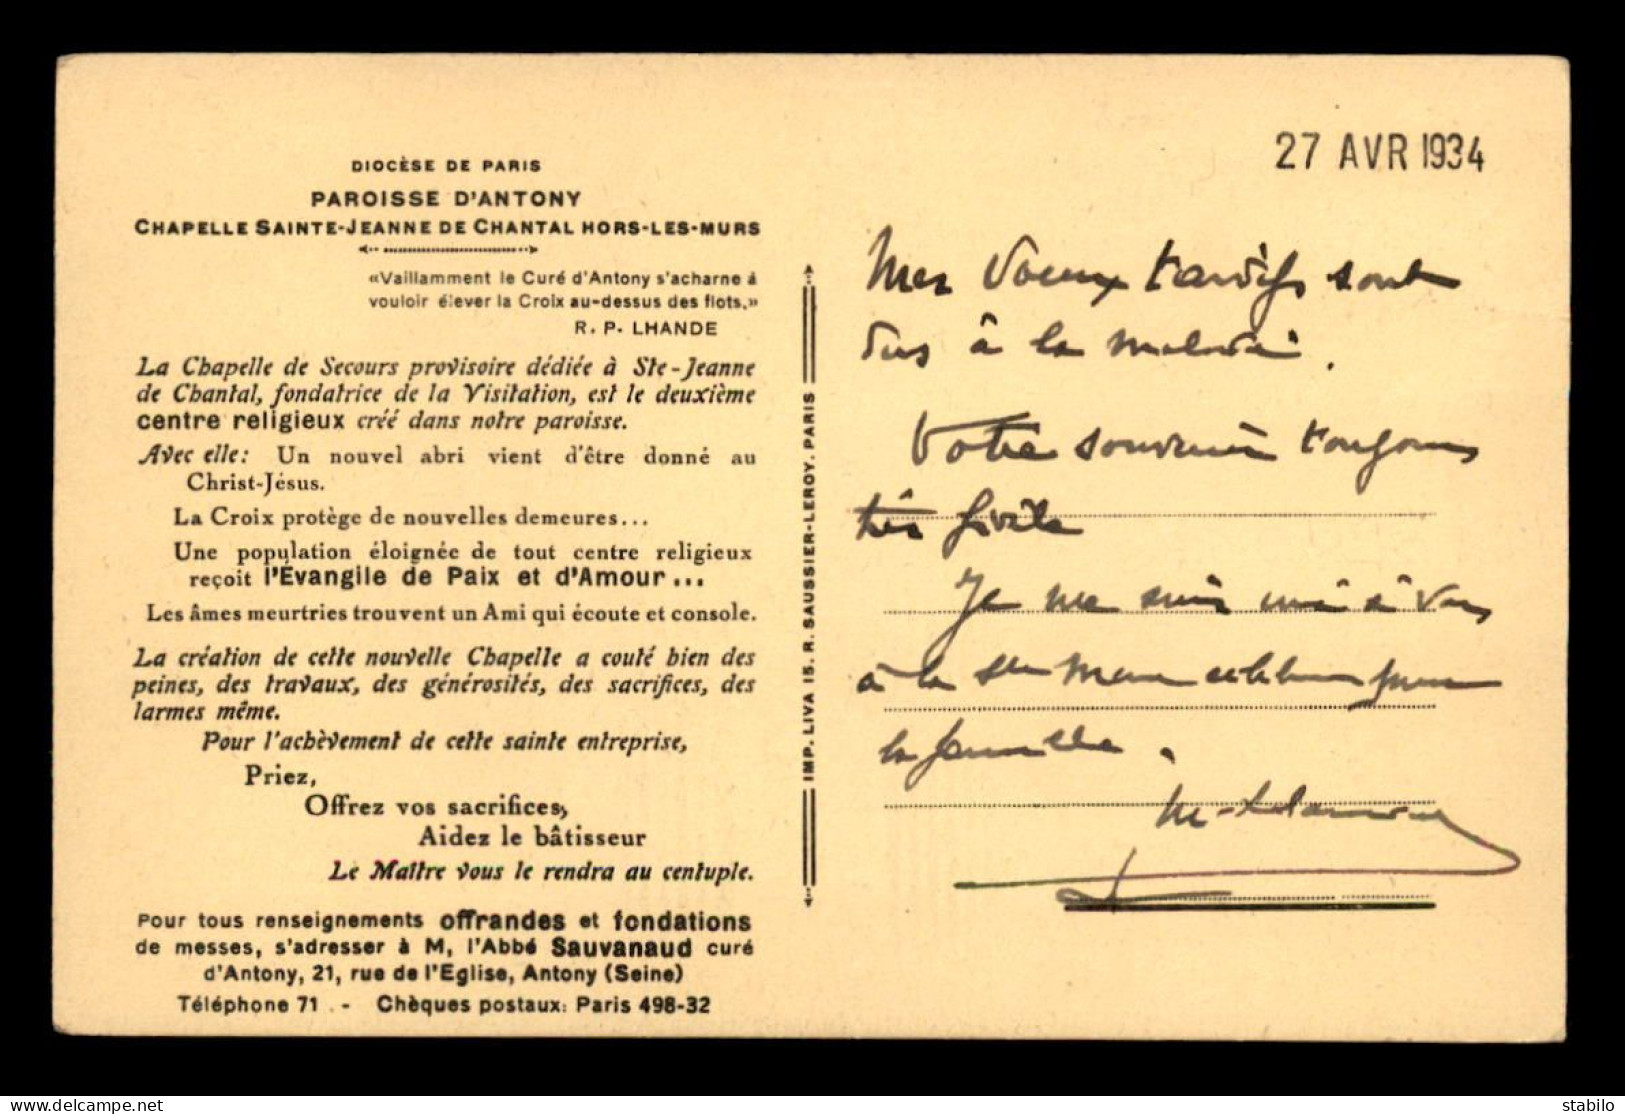 DIOCÈSE DE PARIS
PAROISSE D'ANTONY
CHAPELLE SAINTE-JEANNE DE CHANTAL HORS-LES-MURS
«Vaillamment le Curé d'Antony s'acharne à
vouloir élever la Croix au-dessus des flots.»
R. P. LHANDE
La Chapelle de Secours provisoire dédiée à Ste-Jeanne
de Chantal, fondatrice de la Visitation, est le deuxième
centre religieux créé dans notre paroisse.
Avec elle: Un nouvel abri vient d'être donné au
Christ-Jésus.
La Croix protège de nouvelles demeures...
Une population éloignée de tout centre religieux
reçoit l'Évangile de Paix et d'Amour...
Les âmes meurtries trouvent un Ami qui écoute et console.
La création de cette nouvelle Chapelle a couté bien des
peines, des travaux, des générosités, des sacrifices, des
larmes même.
Pour l'achèvement de cette sainte entreprise,
Priez,
Offrez vos sacrifices,
Aidez le bâtisseur
Le Maître vous le rendra au centuple.
Pour tous renseignements offrandes et fondations
de messes, s'adresser à M, l'Abbé Sauvanaud curé
d'Antony, 21, rue de l'Eglise, Antony (Seine)
Téléphone 71 . - Chèques postaux: Paris 498-32
IMP. LIVA 15. R. SAUSSIER-LEROY. PARIS
27 AVR 1934
Mes Voeux tardifs sont
dus à la maladie.
Votre souvenir toujours
très
Je me suis uni à Vous
à la Ste Messe célébrée pour
la famille.
delcampe.net
stabilo